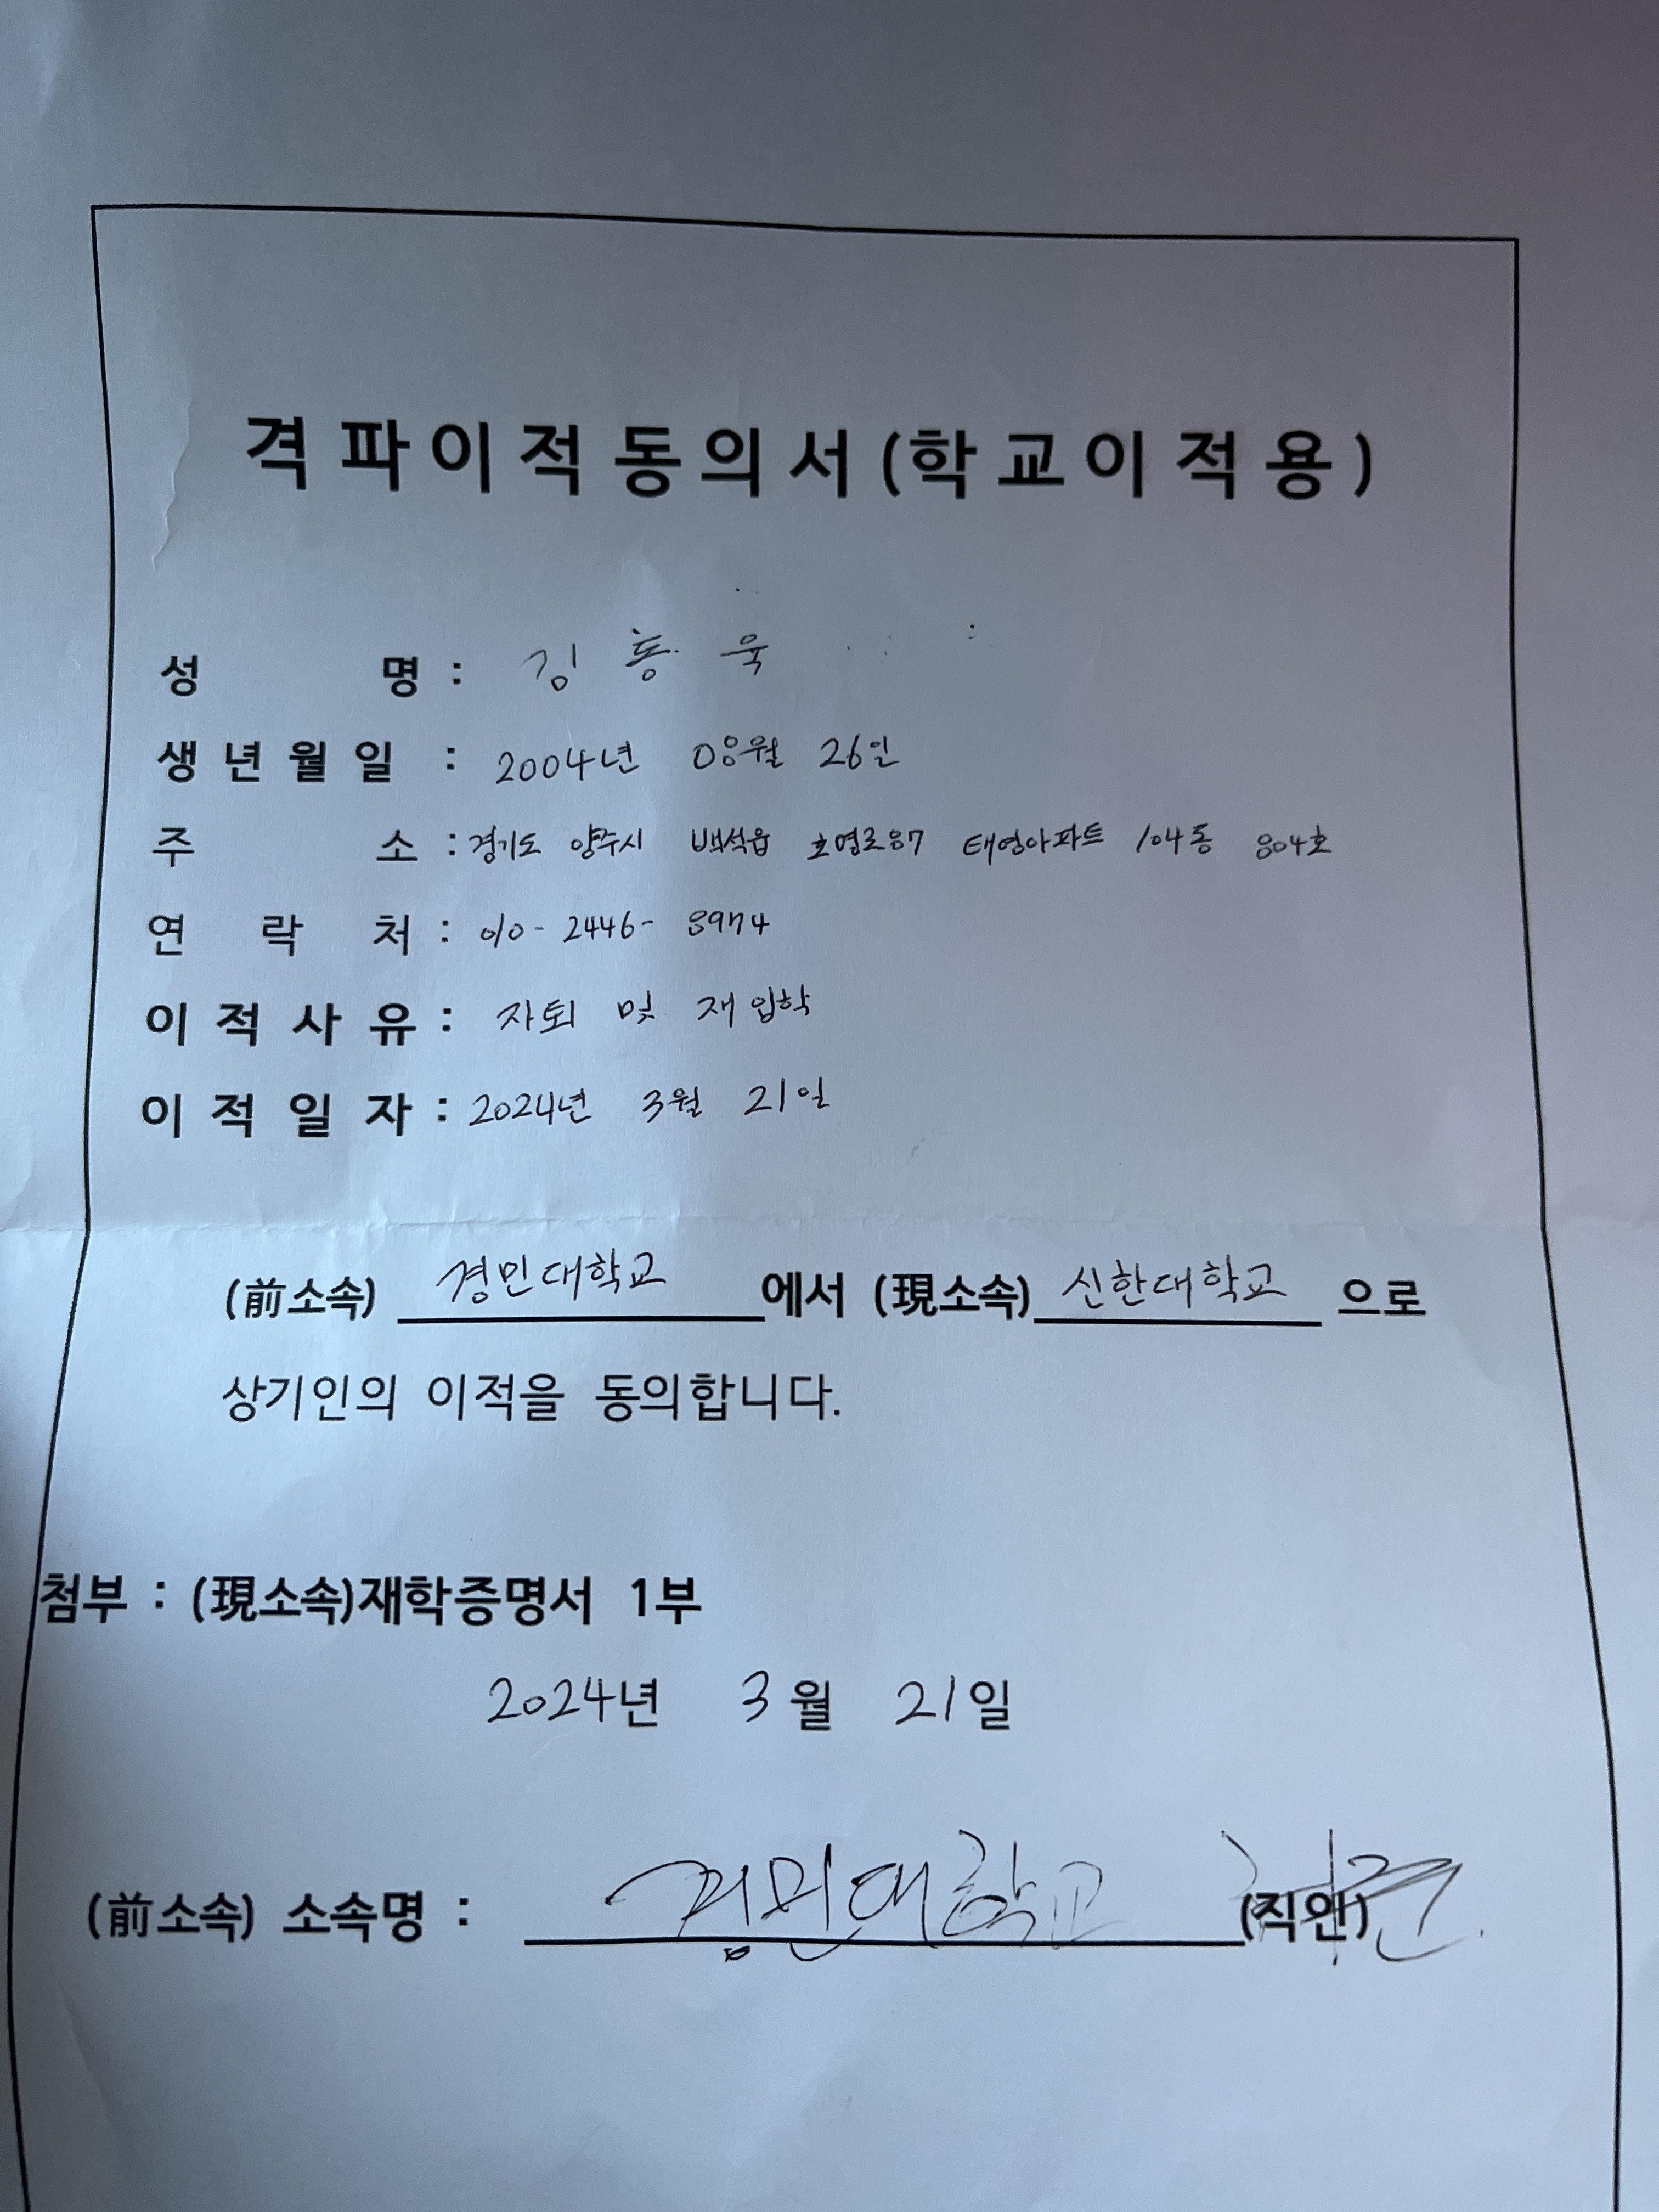 격파이적동의서(학교이적용)
성 명 : 김 동 욱
생년월일 : 2004년 08월 26일
주 소 : 경기도 양주시 백석읍 호명로87 태영아파트 104동 804호
연 락 처 : 010-2446-8974
이적사유 : 자퇴 및 재입학
이적일자 : 2024년 3월 21일
(前소속) 경민대학교 에서 (現소속) 신한대학교 으로
상기인의 이적을 동의합니다.
첨부 : (現소속)재학증명서 1부
2024년 3월 21일
(前소속) 소속명 : 경민대학교 (직인)